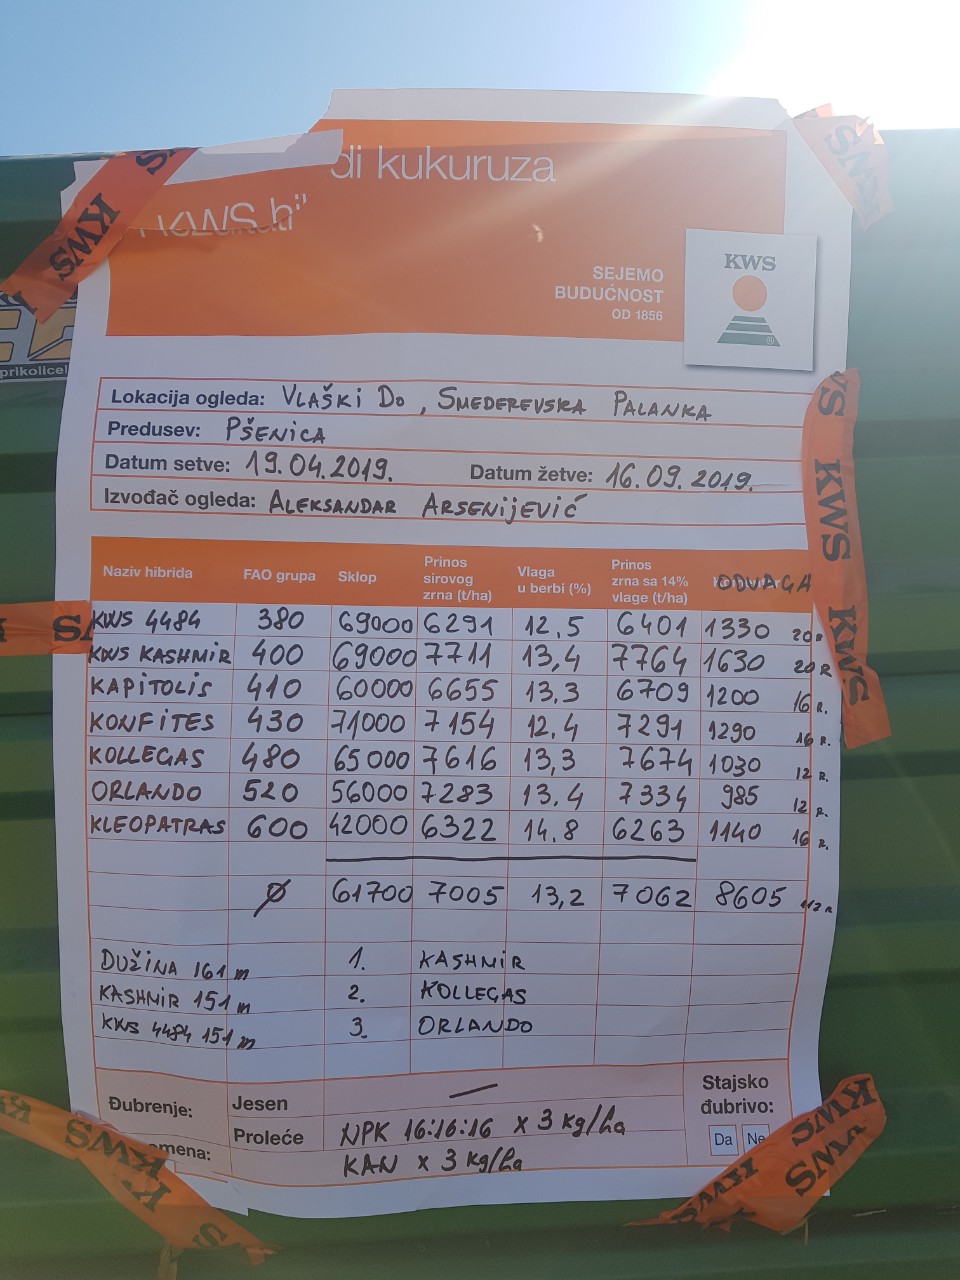 di kukuruza
KWS
SEJEMO
BUDUĆNOST
OD 1856
KWS
prikolice
Lokacija ogleda: VLAŠKI DO, SMEDEREVSKA PALANKA
Predusev: PŠENICA
Datum setve: 19.04.2019. Datum žetve: 16.09.2019.
Izvođač ogleda: ALEKSANDAR ARSENIJEVIĆ
Naziv hibrida FAO grupa Sklop Prinos sirovog zrna (t/ha) Vlaga u berbi (%) Prinos zrna sa 14% vlage (t/ha) ODVAGA
KWS 4484 380 69000 6291 12,5 6401 1330 20R
KWS KASHMIR 400 69000 7711 13,4 7764 1630 20R
KAPITOLIS 410 60000 6655 13,3 6709 1200 16R.
KONFITES 430 71000 7154 12,4 7291 1290 16R.
KOLLEGAS 480 65000 7616 13,3 7674 1030 12R.
ORLANDO 520 56000 7283 13.4 7334 985 12R.
KLEOPATRAS 600 42000 6322 14.8 6263 1140 16R.
Ø 61700 7005 13,2 7062 8605 112R
DUŽINA 161 m 1. KASHMIR
KASHMIR 151 m 2. KOLLEGAS
KWS 4484 151 m 3. ORLANDO
Đubrenje: Jesen — Stajsko đubrivo:
Proleće NPK 16:16:16 x 3 kg/ha Da Ne
mena: KAN x 3 kg/ha
KWS
KWS
KWS
KWS
KWS
KWS
KWS
KWS
KWS
KWS